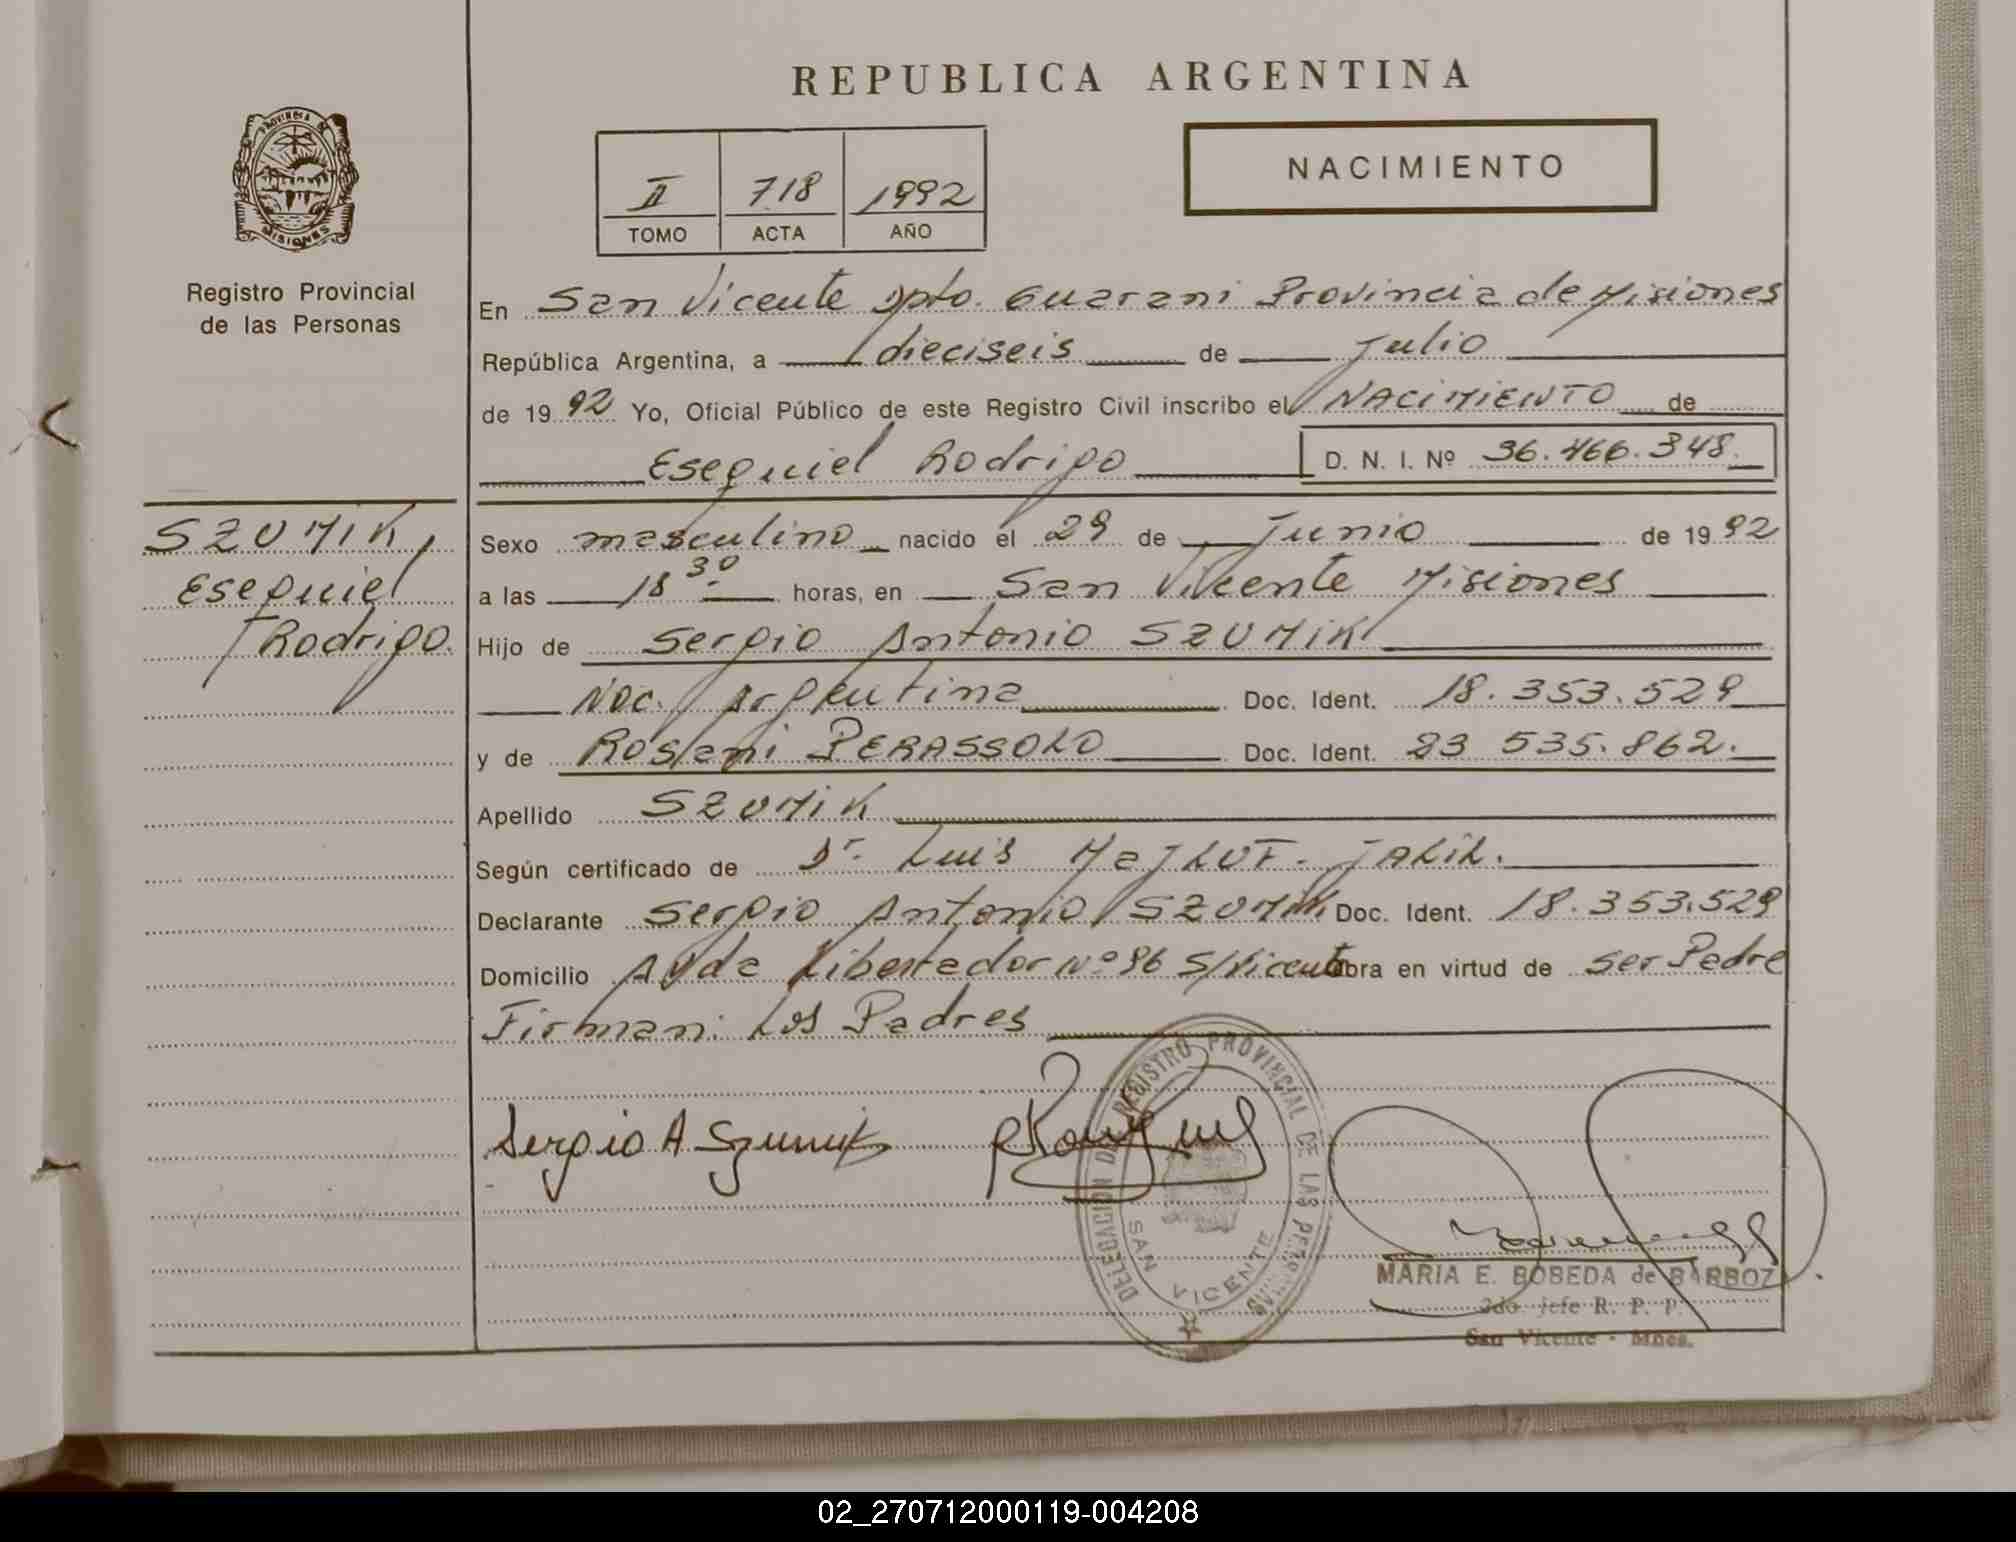 REPUBLICA ARGENTINA
PROVINCIA DE
MISIONES
Registro Provincial
de las Personas
II 718 1992
TOMO ACTA AÑO
NACIMIENTO
En San Vicente Dpto. Guarani Provincia de Misiones
República Argentina, a dieciseis de Julio
de 1992 Yo, Oficial Público de este Registro Civil inscribo el NACIMIENTO de
Esequiel Rodrigo D. N. I. Nº 36.466.348.
SZUMIK,
Esequiel
Rodrigo.
Sexo masculino nacido el 29 de Junio de 1992
a las 18 30 horas, en San Vicente Misiones
Hijo de Sergio Antonio SZUMIK
Nac. Argentina Doc. Ident. 18.353.529
y de Rosani PERASSOLO Doc. Ident. 23 535.862.
Apellido SZUMIK
Según certificado de Dr. Luis MaJLUF. JALIL.
Declarante Sergio Antonio SZUMIK Doc. Ident. 18.353.529
Domicilio Avda Libertador Nº 86 S/Vicente obra en virtud de ser Padre
Firman: Los Padres
Sergio A Szumik
DELEGACION DE REGISTRO PROVINCIAL DE LAS PERSONAS
SAN VICENTE
MARIA E. BOBEDA de BARBOZ
2do. jefe R. P. P.
San Vicente - Mnes.
02_270712000119-004208